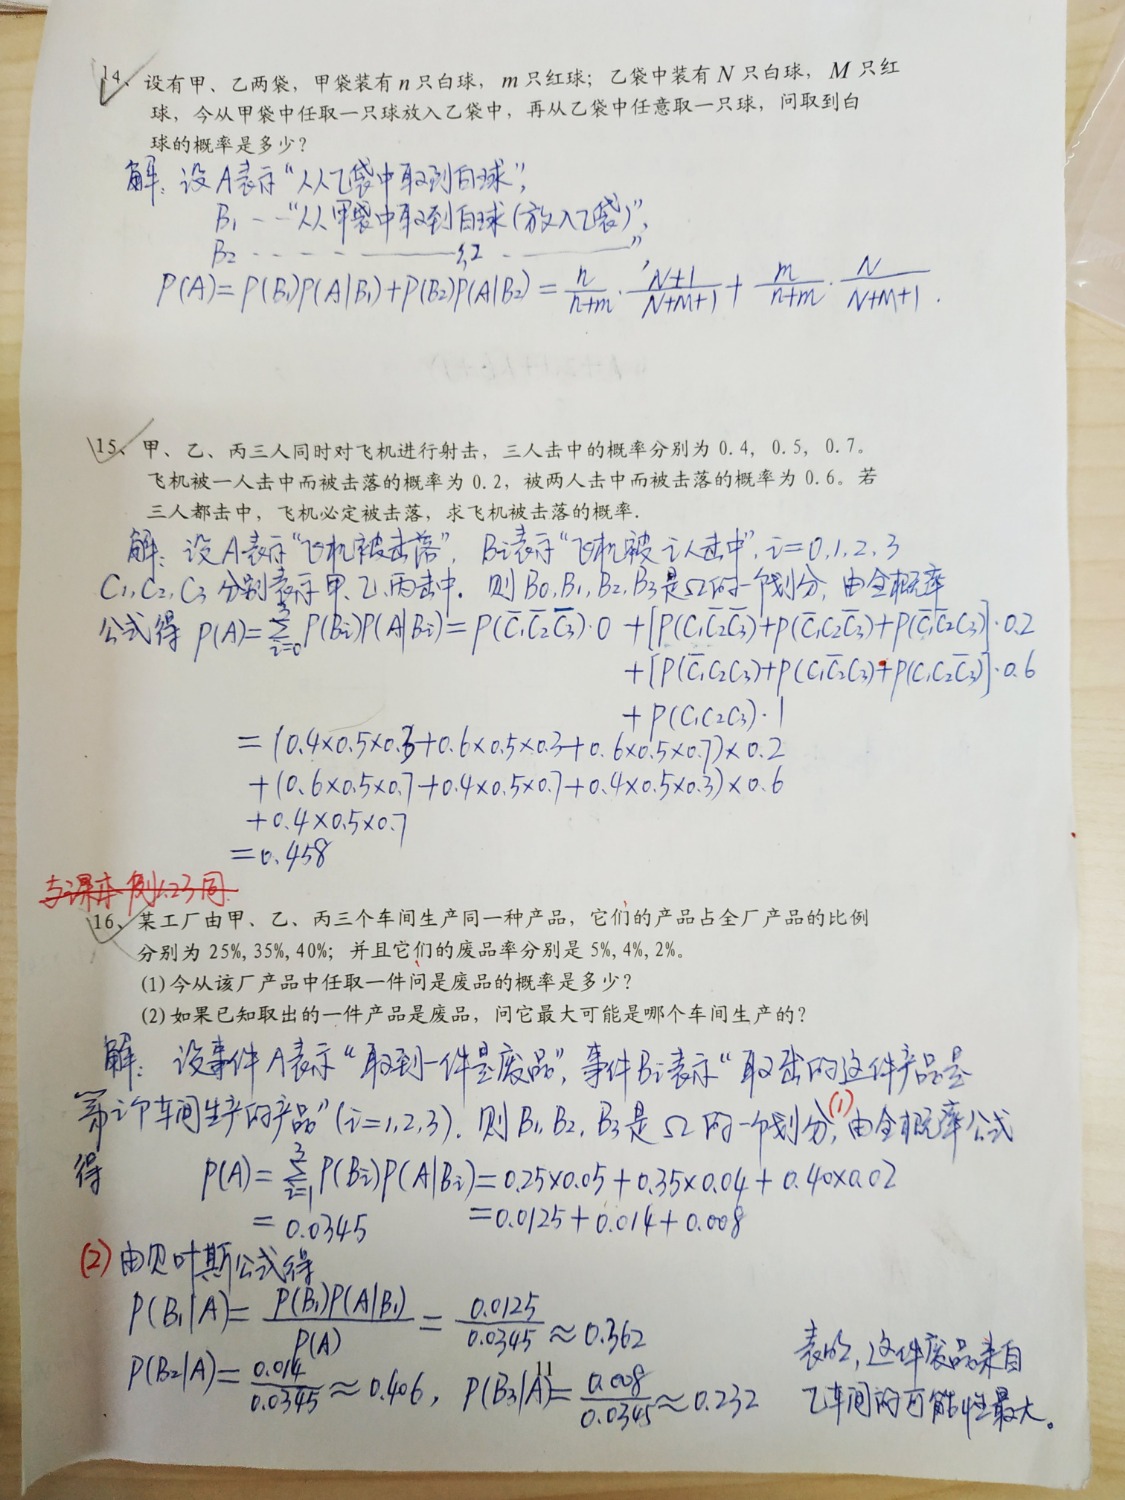 14、设有甲、乙两袋，甲袋装有n只白球，m只红球；乙袋中装有N只白球，M只红
球，今从甲袋中任取一只球放入乙袋中，再从乙袋中任意取一只球，问取到白
球的概率是多少？
解：设A表示“从乙袋中取到白球”，
B₁ - - “从甲袋中取到白球(放入乙袋)”，
B₂ - - - - —— 红 ——”
P(A)=P(B₁)P(A|B₁)+P(B₂)P(A|B₂)=n/(n+m)·(N+1)/(N+M+1)+m/(n+m)·N/(N+M+1).
15、甲、乙、丙三人同时对飞机进行射击，三人击中的概率分别为0.4, 0.5, 0.7。
飞机被一人击中而被击落的概率为0.2，被两人击中而被击落的概率为0.6。若
三人都击中，飞机必定被击落，求飞机被击落的概率.
解：设A表示“飞机被击落”，Bi表示“飞机被i人击中”，i=0,1,2,3
C₁,C₂,C₃分别表示甲、乙、丙击中. 则B₀,B₁,B₂,B₃是Ω的一个划分，由全概率
公式得 P(A)=∑(i=0→3)P(Bi)P(A|Bi)=P(C̄₁C̄₂C̄₃)·0+[P(C₁C̄₂C̄₃)+P(C̄₁C₂C̄₃)+P(C̄₁C̄₂C₃)]·0.2
+[P(C̄₁C₂C₃)+P(C₁C̄₂C₃)+P(C₁C₂C̄₃)]·0.6
+P(C₁C₂C₃)·1
=(0.4×0.5×0.3+0.6×0.5×0.3+0.6×0.5×0.7)×0.2
+(0.6×0.5×0.7+0.4×0.5×0.7+0.4×0.5×0.3)×0.6
+0.4×0.5×0.7
=0.458
与课本例1.23同
16、某工厂由甲、乙、丙三个车间生产同一种产品，它们的产品占全厂产品的比例
分别为25%,35%,40%；并且它们的废品率分别是5%,4%,2%。
(1)今从该厂产品中任取一件问是废品的概率是多少？
(2)如果已知取出的一件产品是废品，问它最大可能是哪个车间生产的？
解：设事件A表示“取到一件是废品”，事件Bi表示“取出的这件产品是
第i个车间生产的产品”(i=1,2,3). 则B₁,B₂,B₃是Ω的一个划分，(1)由全概率公式
得 P(A)=∑(i=1→3)P(Bi)P(A|Bi)=0.25×0.05+0.35×0.04+0.40×0.02
=0.0345 =0.0125+0.014+0.008
(2)由贝叶斯公式得
P(B₁|A)=P(B₁)P(A|B₁)/P(A)=0.0125/0.0345≈0.362
P(B₂|A)=0.014/0.0345≈0.406，P(B₃|A)=0.008/0.0345≈0.232
表明，这件废品来自
乙车间的可能性最大。
11